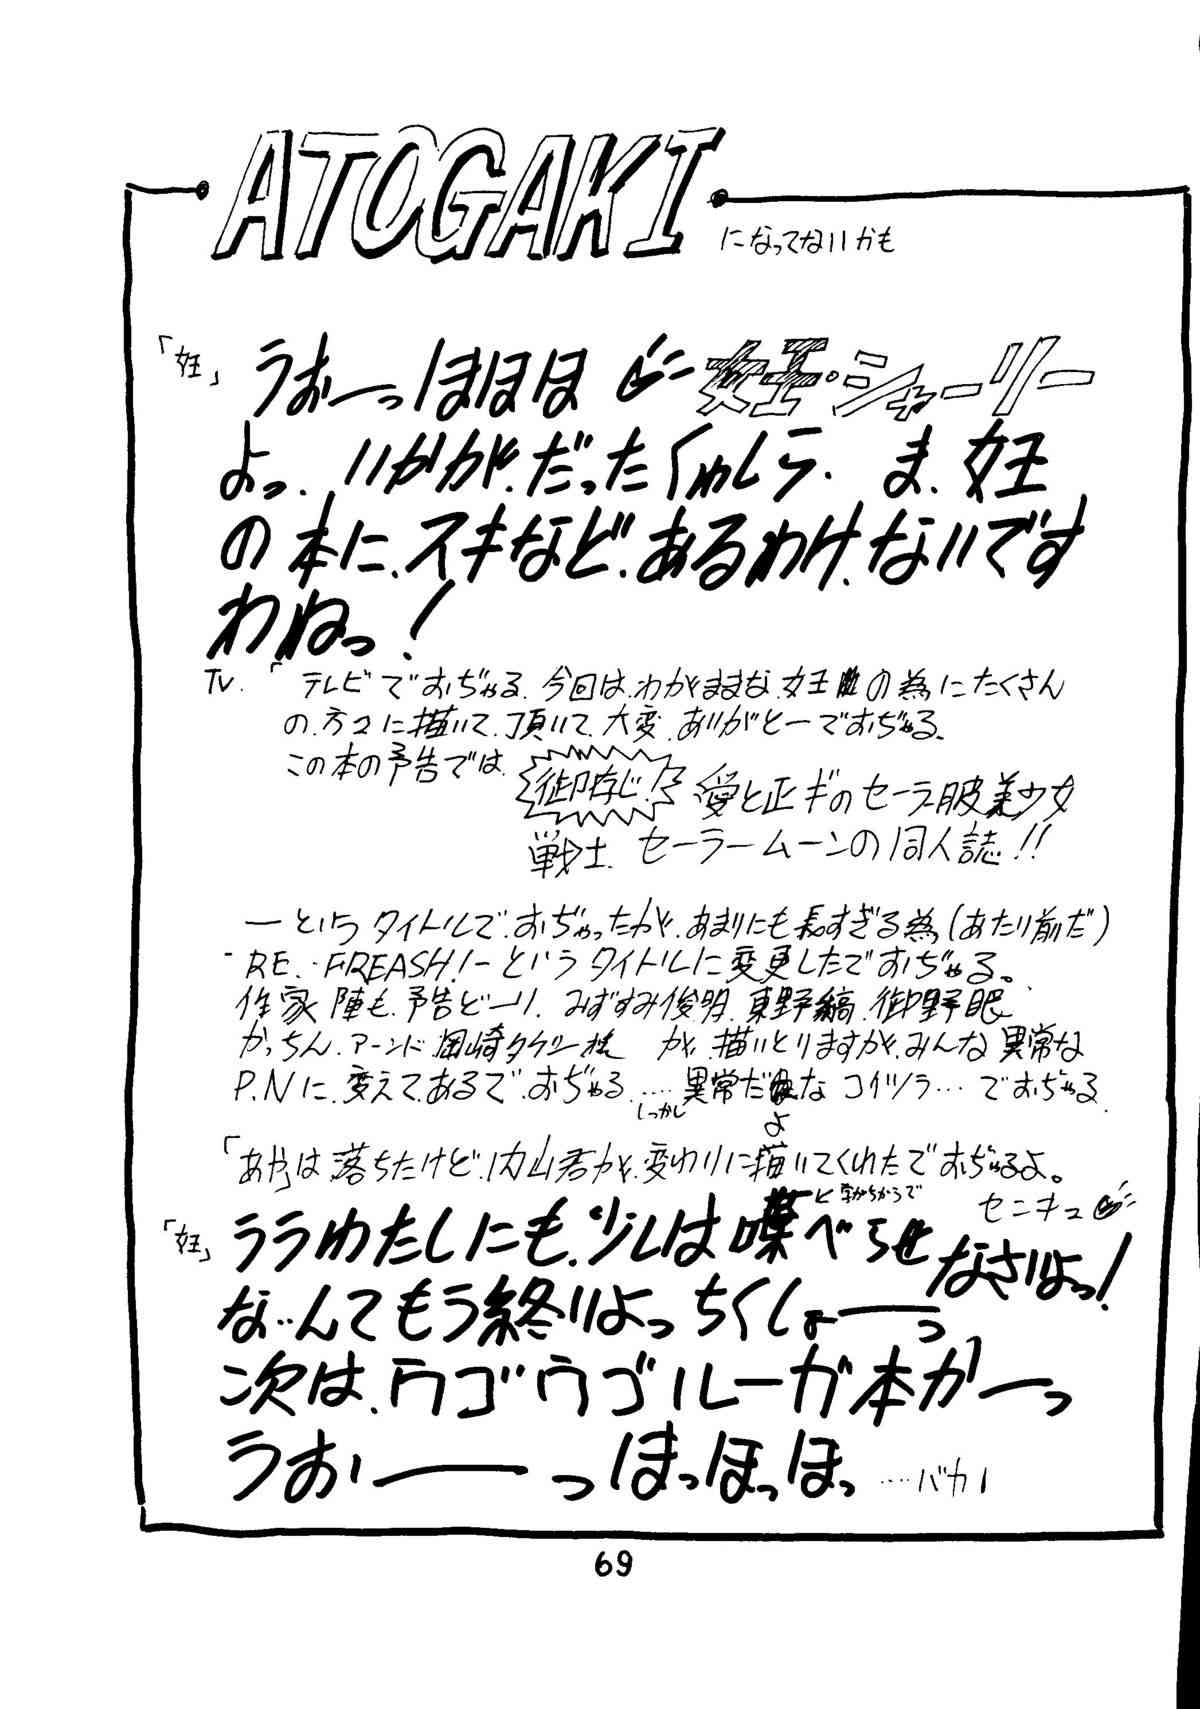 ATOGAKI になってないかも
「女王」うぉーっほほほ 女王・シャーリー
よっ.いかがだったくゎしら.ま.女王
の本に.スキなど.あるわけ.ないです
わねっ!
TV.「テレビでおぢゃる.今回は.わがままな.女王の為にたくさん
の.方々に描いて.頂いて.大変.ありがとーでおぢゃる.
この本の予告では.御存じ! 愛と正ギのセーラー服美少女
戦士.セーラームーンの同人誌!!
―というタイトルで.おぢゃったが.あまりにも長すぎる為(あたり前だ)
-RE.FREASH!-というタイトルに変更したでおぢゃる。
作家陣も.予告どーり.みずすみ俊明.東野縞.御野眼
かっちん.アーンド岡崎タケシ様 が.描いとりますが.みんな異常な
P.Nに.変えてあるで.おぢゃる.……異常だな コイツラ…でおぢゃる.
しっかし
よ
「あやは落ちたけど.内山君が.変わりに描いてくれたでおぢゃるよ。
「女王」ララわたしにも.少しは喋べらせ
なさいよっ!
な..んてもう終りよっちくしょーっ
次は.ウゴウゴルーガ本かーっ
うおぃ――っほっほっほっ ……バカ!
69